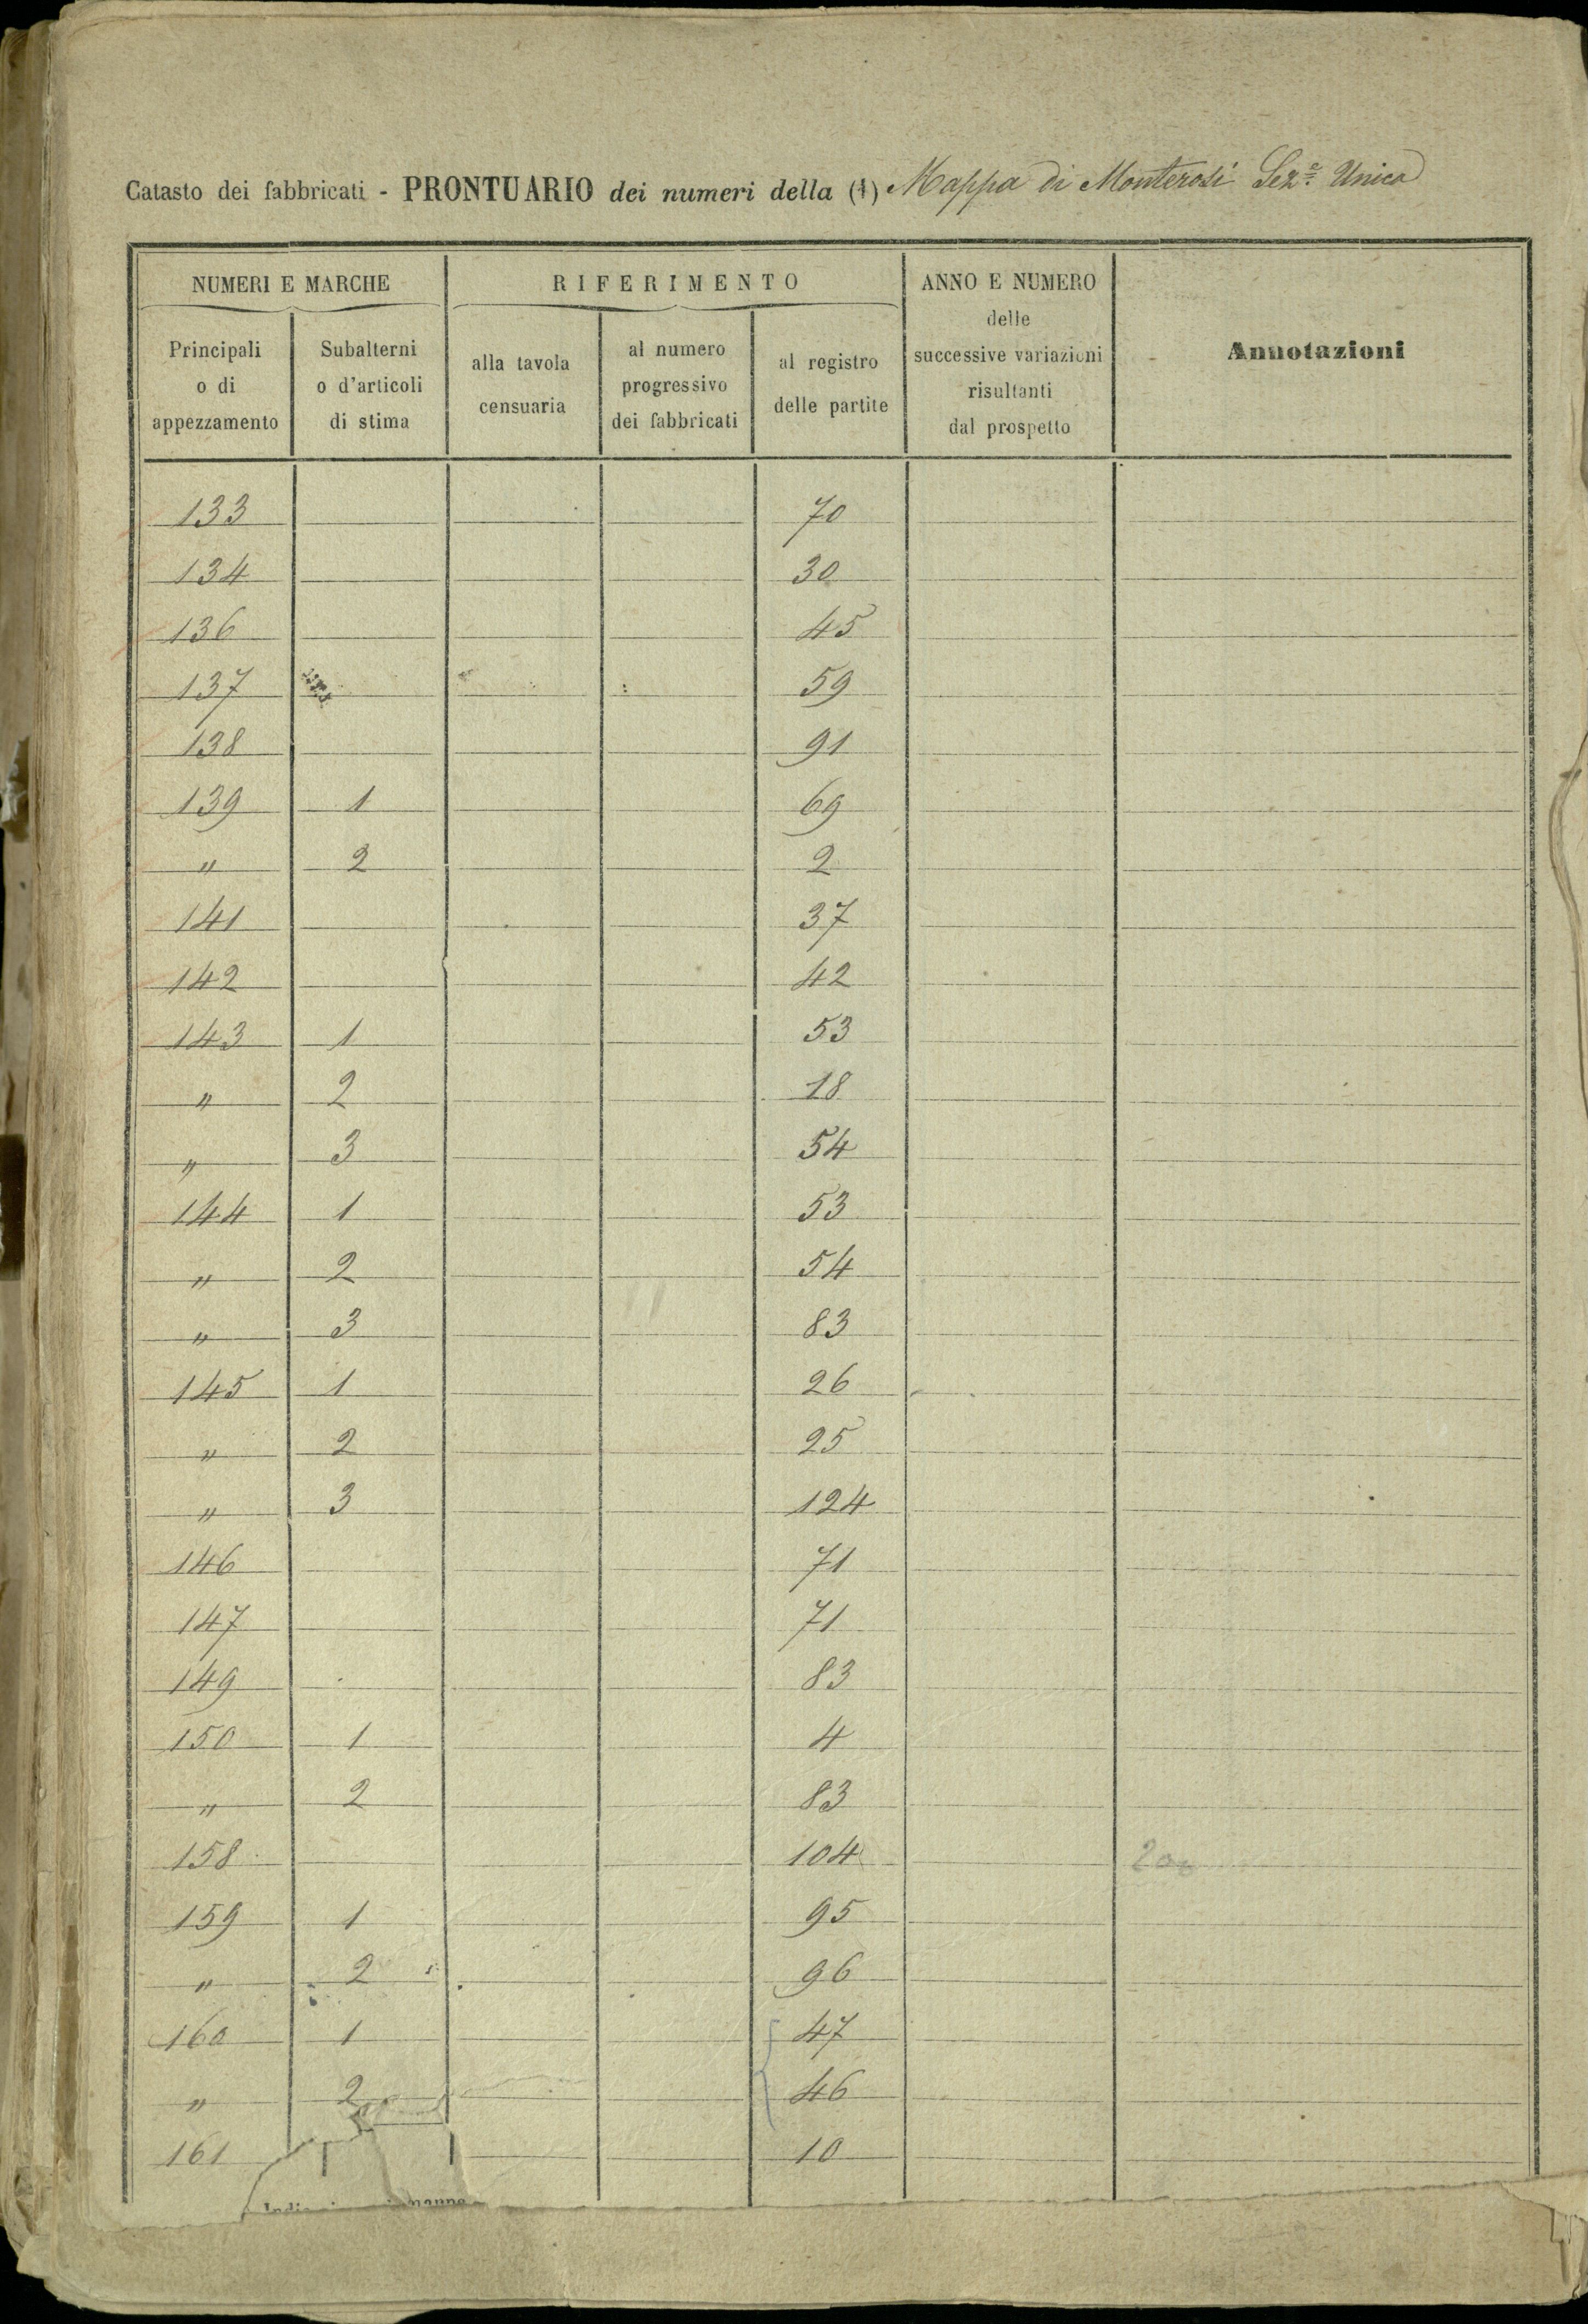 Catasto dei fabbricati - PRONTUARIO dei numeri della (1) Mappa di Monterosi Sezᵉ. Unica
NUMERI E MARCHE
RIFERIMENTO
ANNO E NUMERO
delle
successive variazioni
risultanti
dal prospetto
Annotazioni
Principali
o di
appezzamento
Subalterni
o d'articoli
di stima
alla tavola
censuaria
al numero
progressivo
dei fabbricati
al registro
delle partite
133 70
134 30
136 45
137 59
138 91
139 1 69
" 2 2
141 37
142 42
143 1 53
" 2 18
" 3 54
144 1 53
" 2 54
" 3 83
145 1 26
" 2 25
" 3 124
146 71
147 71
149 83
150 1 4
" 2 83
158 104
159 1 95
" 2 96
160 1 47
" 2 46
161 10